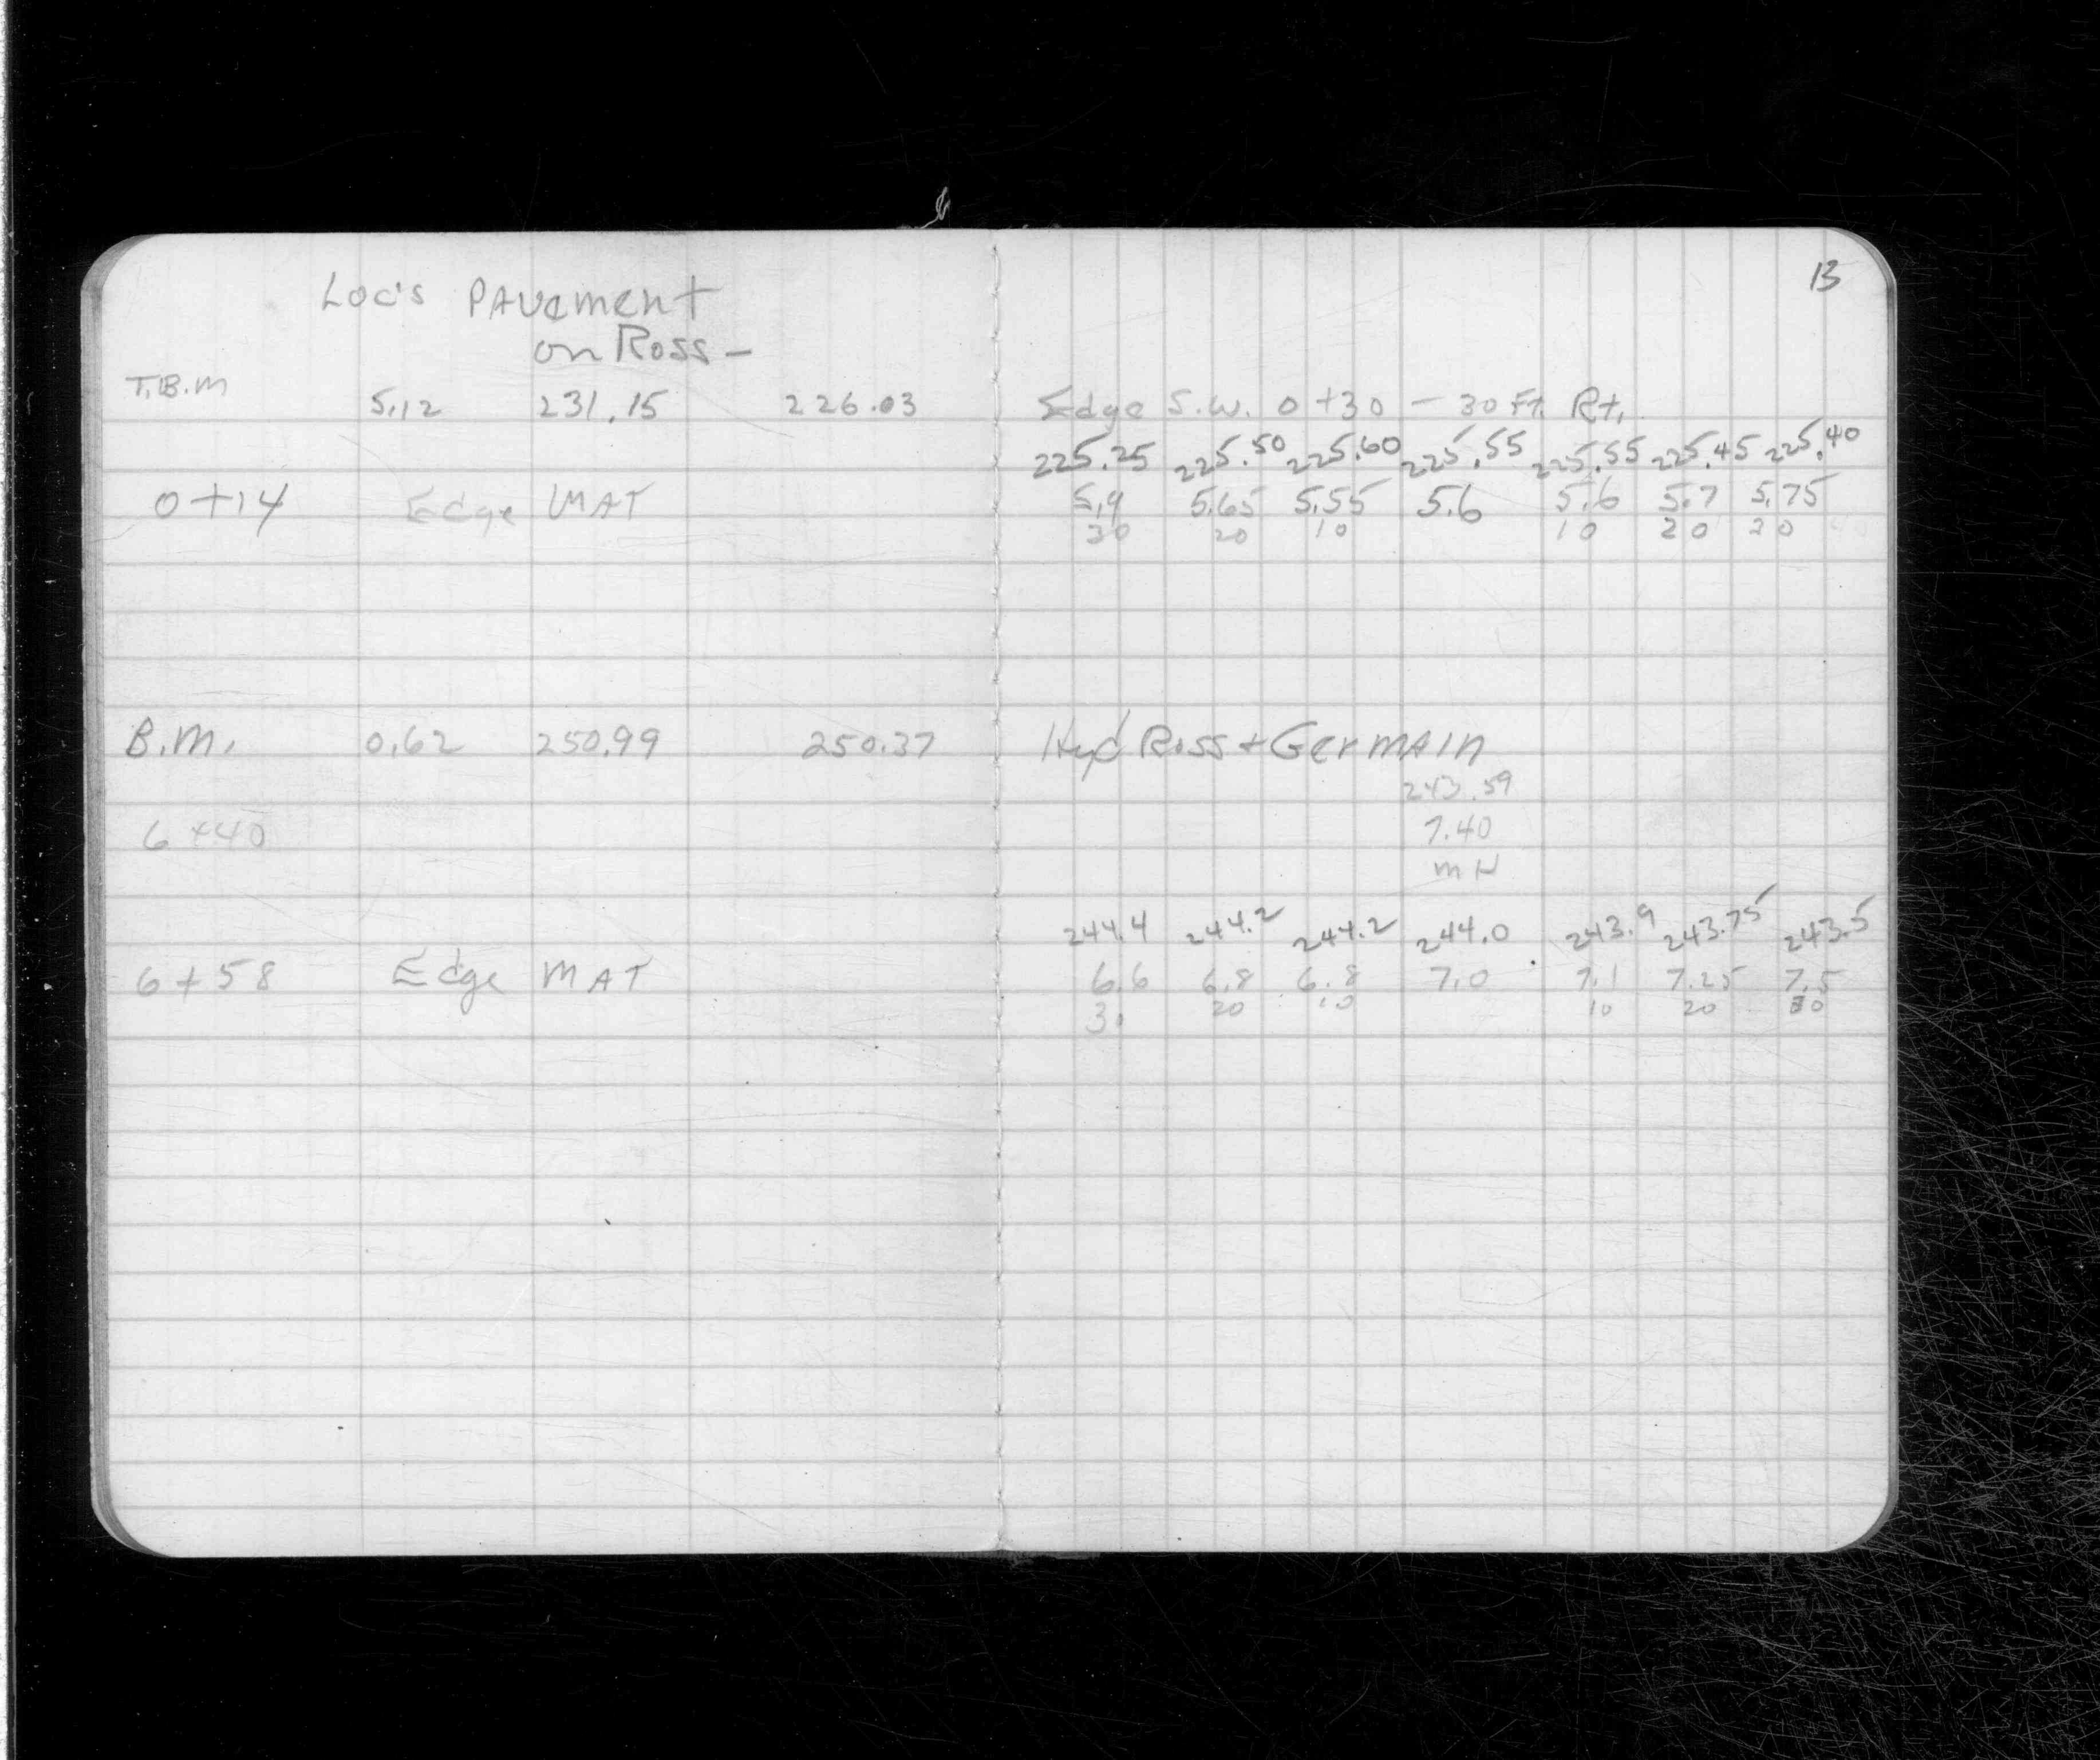 13
Loc's Pavement
on Ross –
T.B.M 5.12 231.15 226.03 Edge S.W. 0+30 – 30 Ft. Rt.
225.25 225.50 225.60 225.55 225.55 225.45 225.40
0+14 Edge MAT 5.9 5.65 5.55 5.6 5.6 5.7 5.75
30 20 10 10 20 30
B.M. 0.62 250.99 250.37 Hyd Ross + Germain
243.59
6+40 7.40
MH
244.4 244.2 244.2 244.0 243.9 243.75 243.5
6+58 Edge MAT 6.6 6.8 6.8 7.0 7.1 7.25 7.5
30 20 10 10 20 30